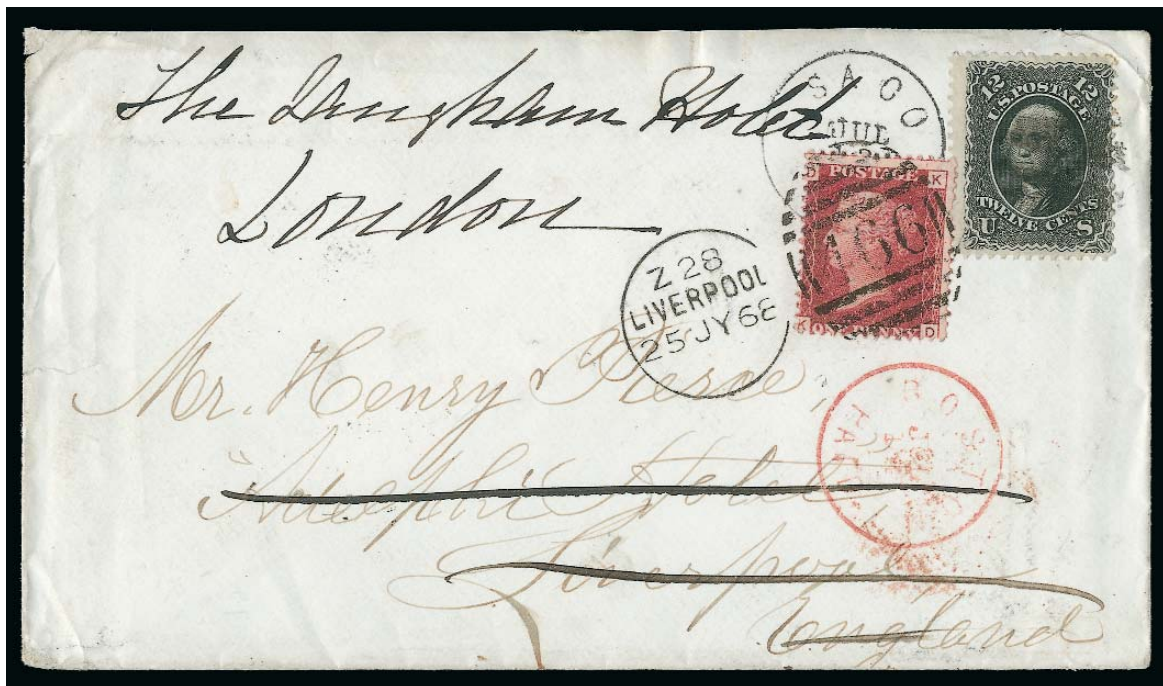 The Langham Hotel
London
SACO
JUL
12 12
U.S. POSTAGE
TWELVE CENTS
U S
POSTAGE
K
466
ONE PENNY
K D
Z 28
LIVERPOOL
25 JY 68
Mr. Henry Pierce,
Adelphi Hotel
Liverpool
England
BOSTON
PAID